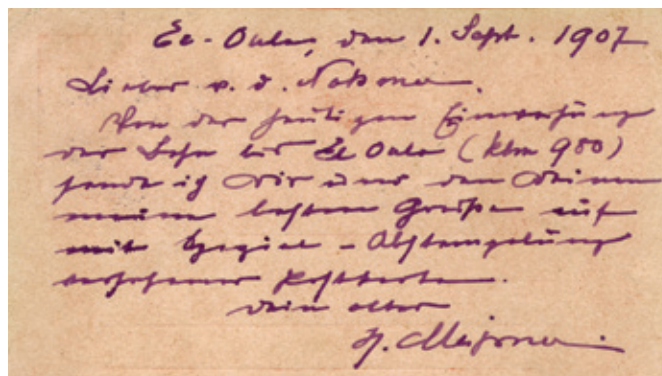 El-Oula, den 1. Sept. 1907
Lieber v. d.
Von der heutigen Einweihung
der Bahn bis El Oula (klm 980)
sende ich Dir und den Deinen
meine besten Grüße auf
mit Spezial-Abstempelung
versehener Postkarte.
Dein alter
H. Meissner